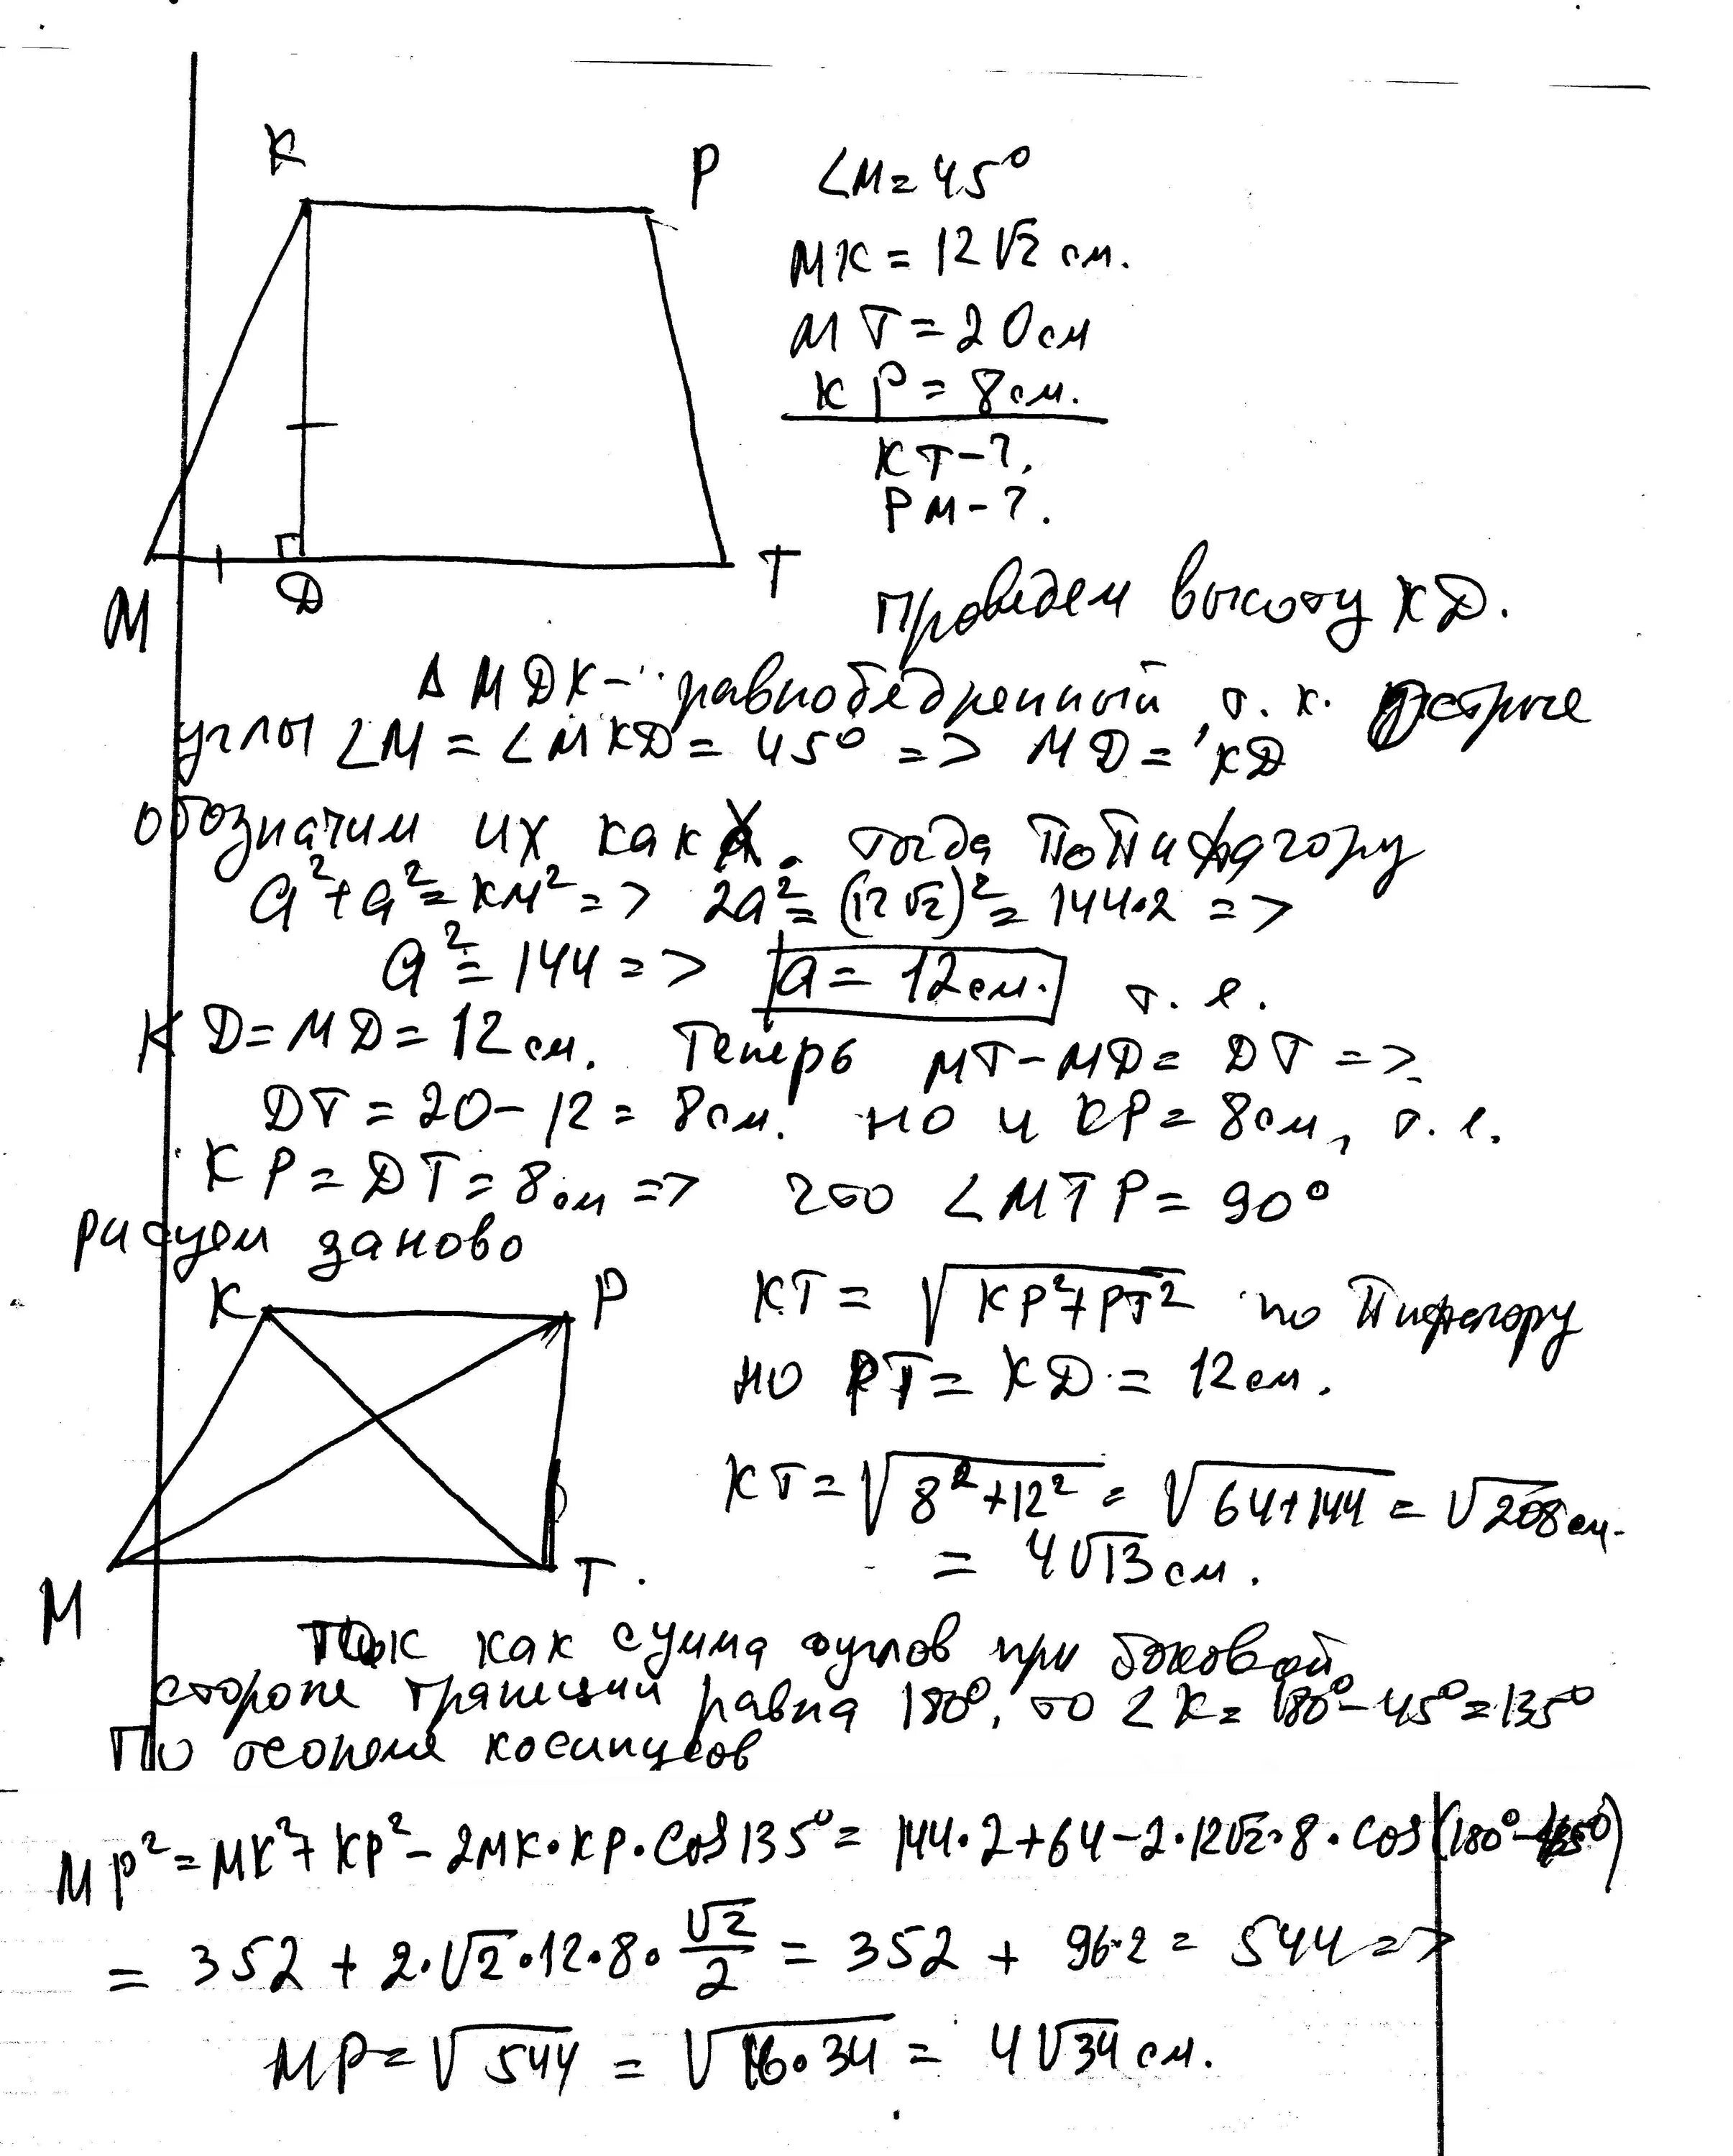 K
P
∠M = 45°
MK = 12√2 см.
MT = 20 см
KP = 8 см.
KT - ?.
PM - ?.
M
D
T
Проведем высоту KD.
Δ MDK - равнобедренный, т. к. острые
углы ∠M = ∠MKD = 45° => MD = KD
обозначим их как a. тогда по Пифагору
a² + a² = KM² => 2a² = (12√2)² = 144·2 =>
a² = 144 => a = 12 см. т. е.
KD = MD = 12 см. Теперь MT - MD = DT =>
DT = 20 - 12 = 8 см. но и KP = 8 см, т. е.
KP = DT = 8 см => что ∠MTP = 90°
рисуем заново
K
P
KT = √KP² + PT² по Пифагору
но PT = KD = 12 см.
KT = √8² + 12² = √64 + 144 = √208 см.
= 4√13 см.
M
T.
Так как сумма углов при боковой
стороне трапеции равна 180°, то ∠K = 180° - 45° = 135°
По теореме косинусов
MP² = MK² + KP² - 2MK·KP·cos 135° = 144·2 + 64 - 2·12√2·8·cos(180° - 45°)
= 352 + 2·√2·12·8·√2/2 = 352 + 96·2 = 544 =>
MP = √544 = √16·34 = 4√34 см.